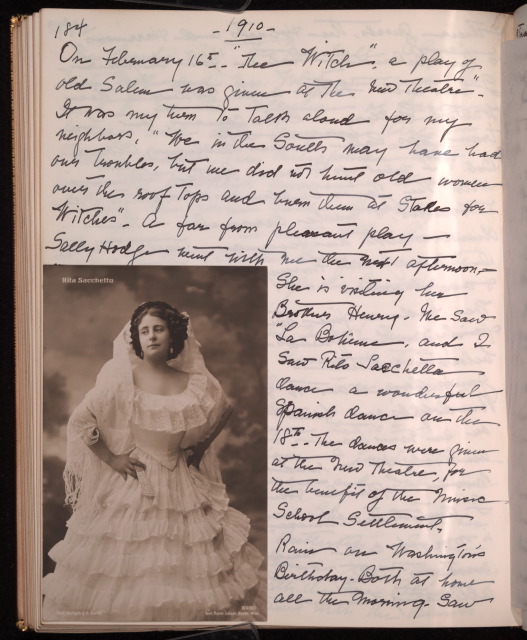 184
- 1910 -
On February 16th - "The Witch", a play of
old Salem was given at the New Theatre".
It was my turn to talk aloud for my
neighbors, "We in the South may have had
our troubles, but we did not hunt old women
over the roof tops and burn them at Stakes for
Witches". A far from pleasant play —
Sally Hodge went with me the next afternoon, -
She is visiting her
Brother Henry. We saw
"La Bohème, and I
saw Rita Sacchetta
dance a wonderful
Spanish dance on the
18th - The dances were given
at the New Theatre, for
the benefit of the Music
School Settlement.
Rain on Washington's
Birthday - Both at home
all the morning. Saw
Rita Sacchetto